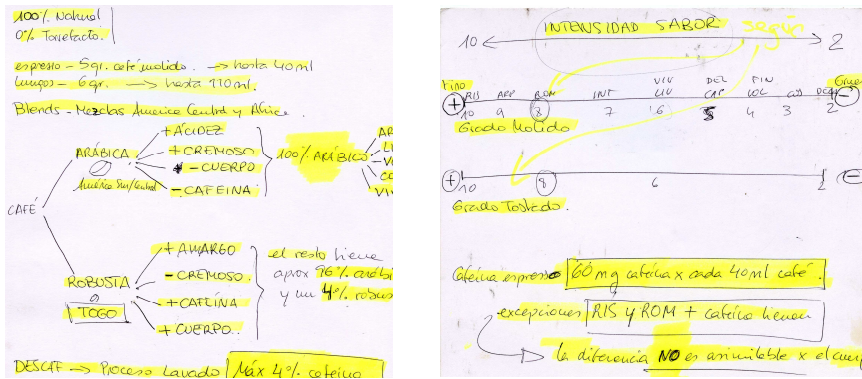 100% Natural
0% Torrefacto.
espresso - 5gr. café molido. -> hasta 40ml
Lungos - 6gr. -> hasta 110ml.
Blends - Mezclas America Central y Africa.
CAFÉ
ARÁBICA
América Sur/Central
+ ACIDEZ
+ CREMOSO
- CUERPO
- CAFEINA
100% ARÁBICO
ROBUSTA
TOGO
+ AMARGO
- CREMOSO
+ CAFEÍNA
+ CUERPO..
el resto tiene
aprox 96% arábi
y un 4% robus
DESCAF -> Proceso Lavado Máx 4% cafeina
INTENSIDAD SABOR según
10 2
Fino
RIS ARP ROM INT VIV LIV DEC CAP FIN VOL COS DEC
+ 10 9 8 7 6 5 4 3 2 -
Grado Molido
+ 10 8 6 2 -
Grado Tostado.
Cafeína espresso 60 mg cafeína x cada 40ml café.
excepciones RIS y ROM + cafeína tienen
la diferencia NO es asimilable x el cuerp